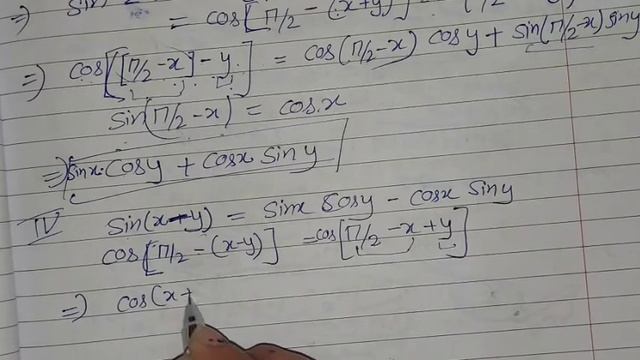 ⇒) = cos[π/2 - (x+y)]
⇒) cos[[π/2 - x] - y] = cos(π/2 - x) cosy + sin(π/2 - x) siny
sin(π/2 - x) = cosx
⇒) sinx·cosy + cosx siny
IV sin(x-y) = sinx cosy - cosx siny
cos[π/2 - (x-y)] = cos[π/2 - x + y]
⇒) cos(x+